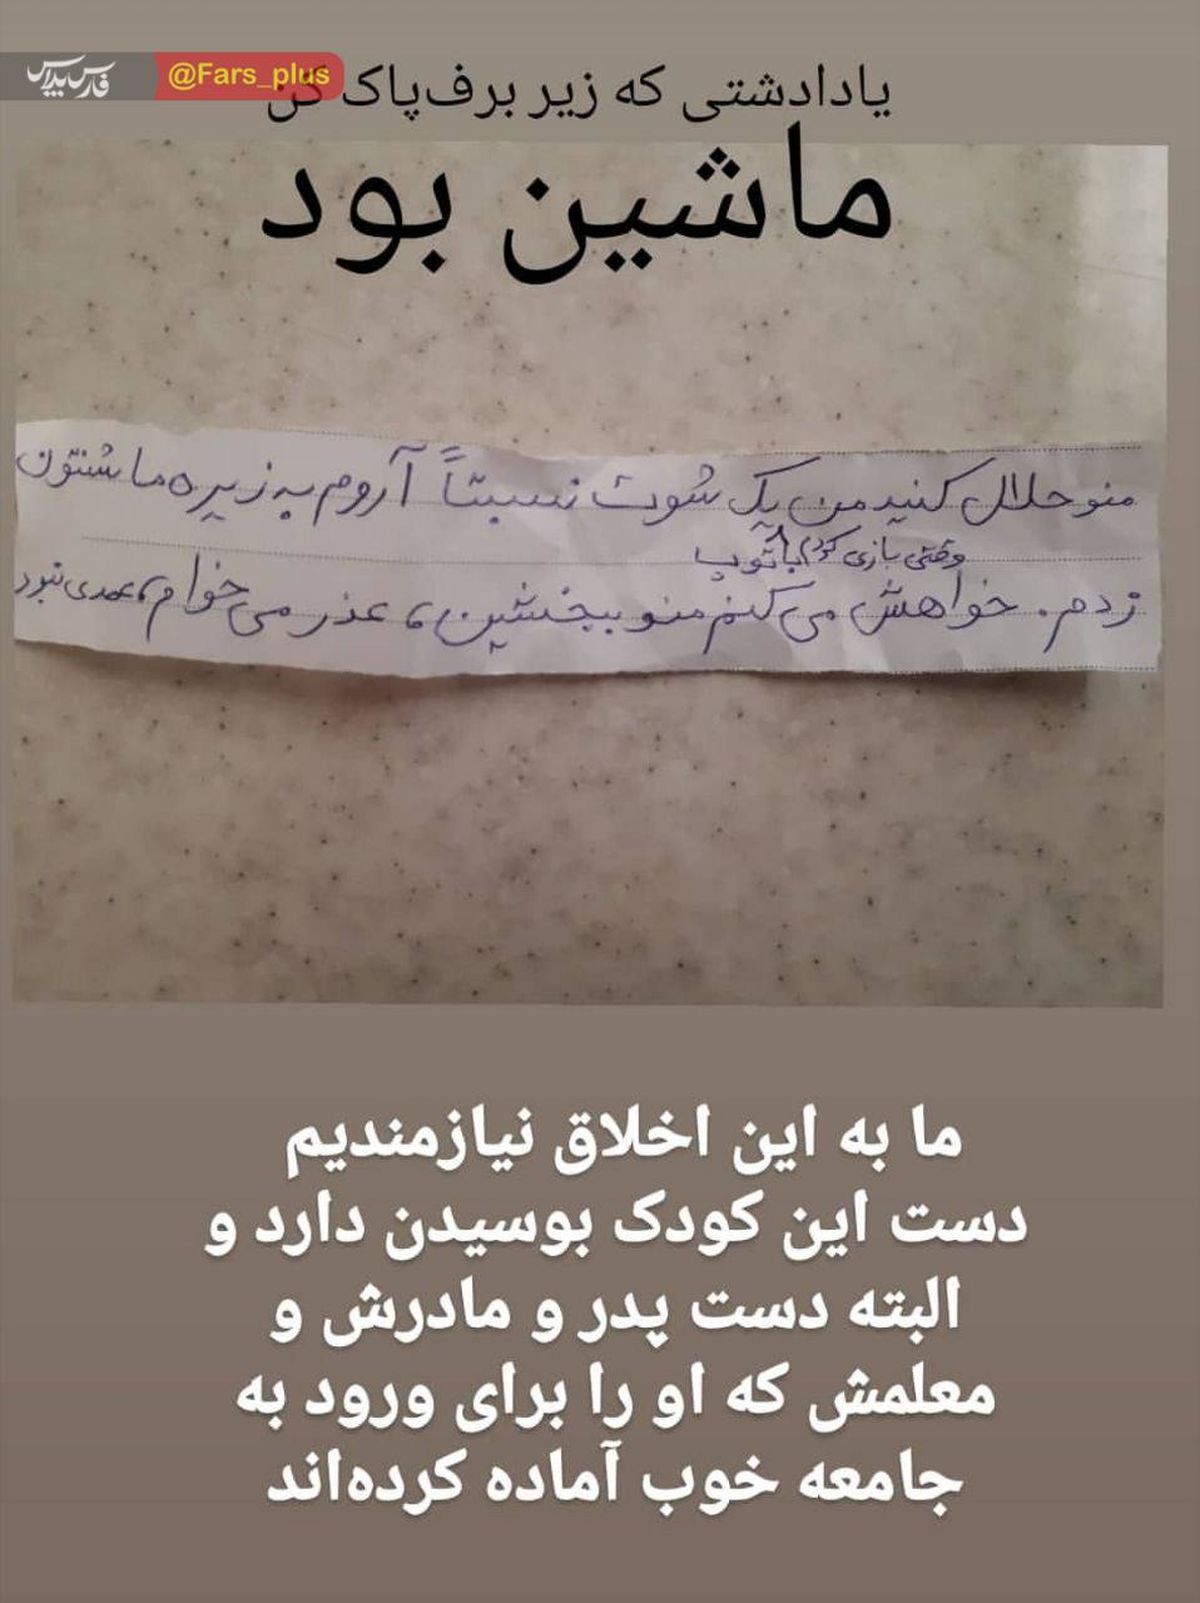 فارس پلاس @Fars_plus
یادادشتی که زیر برف‌پاک کن
ماشین بود
منو حلال کنید من یک شوت نسبتاً آروم به زیره ماشنتون
وقتی بازی کردم با توپ
زدم. خواهش می کنم منو ببخشین، عذر می خوام، عمدی نبود
ما به این اخلاق نیازمندیم
دست این کودک بوسیدن دارد و
البته دست پدر و مادرش و
معلمش که او را برای ورود به
جامعه خوب آماده کرده‌اند